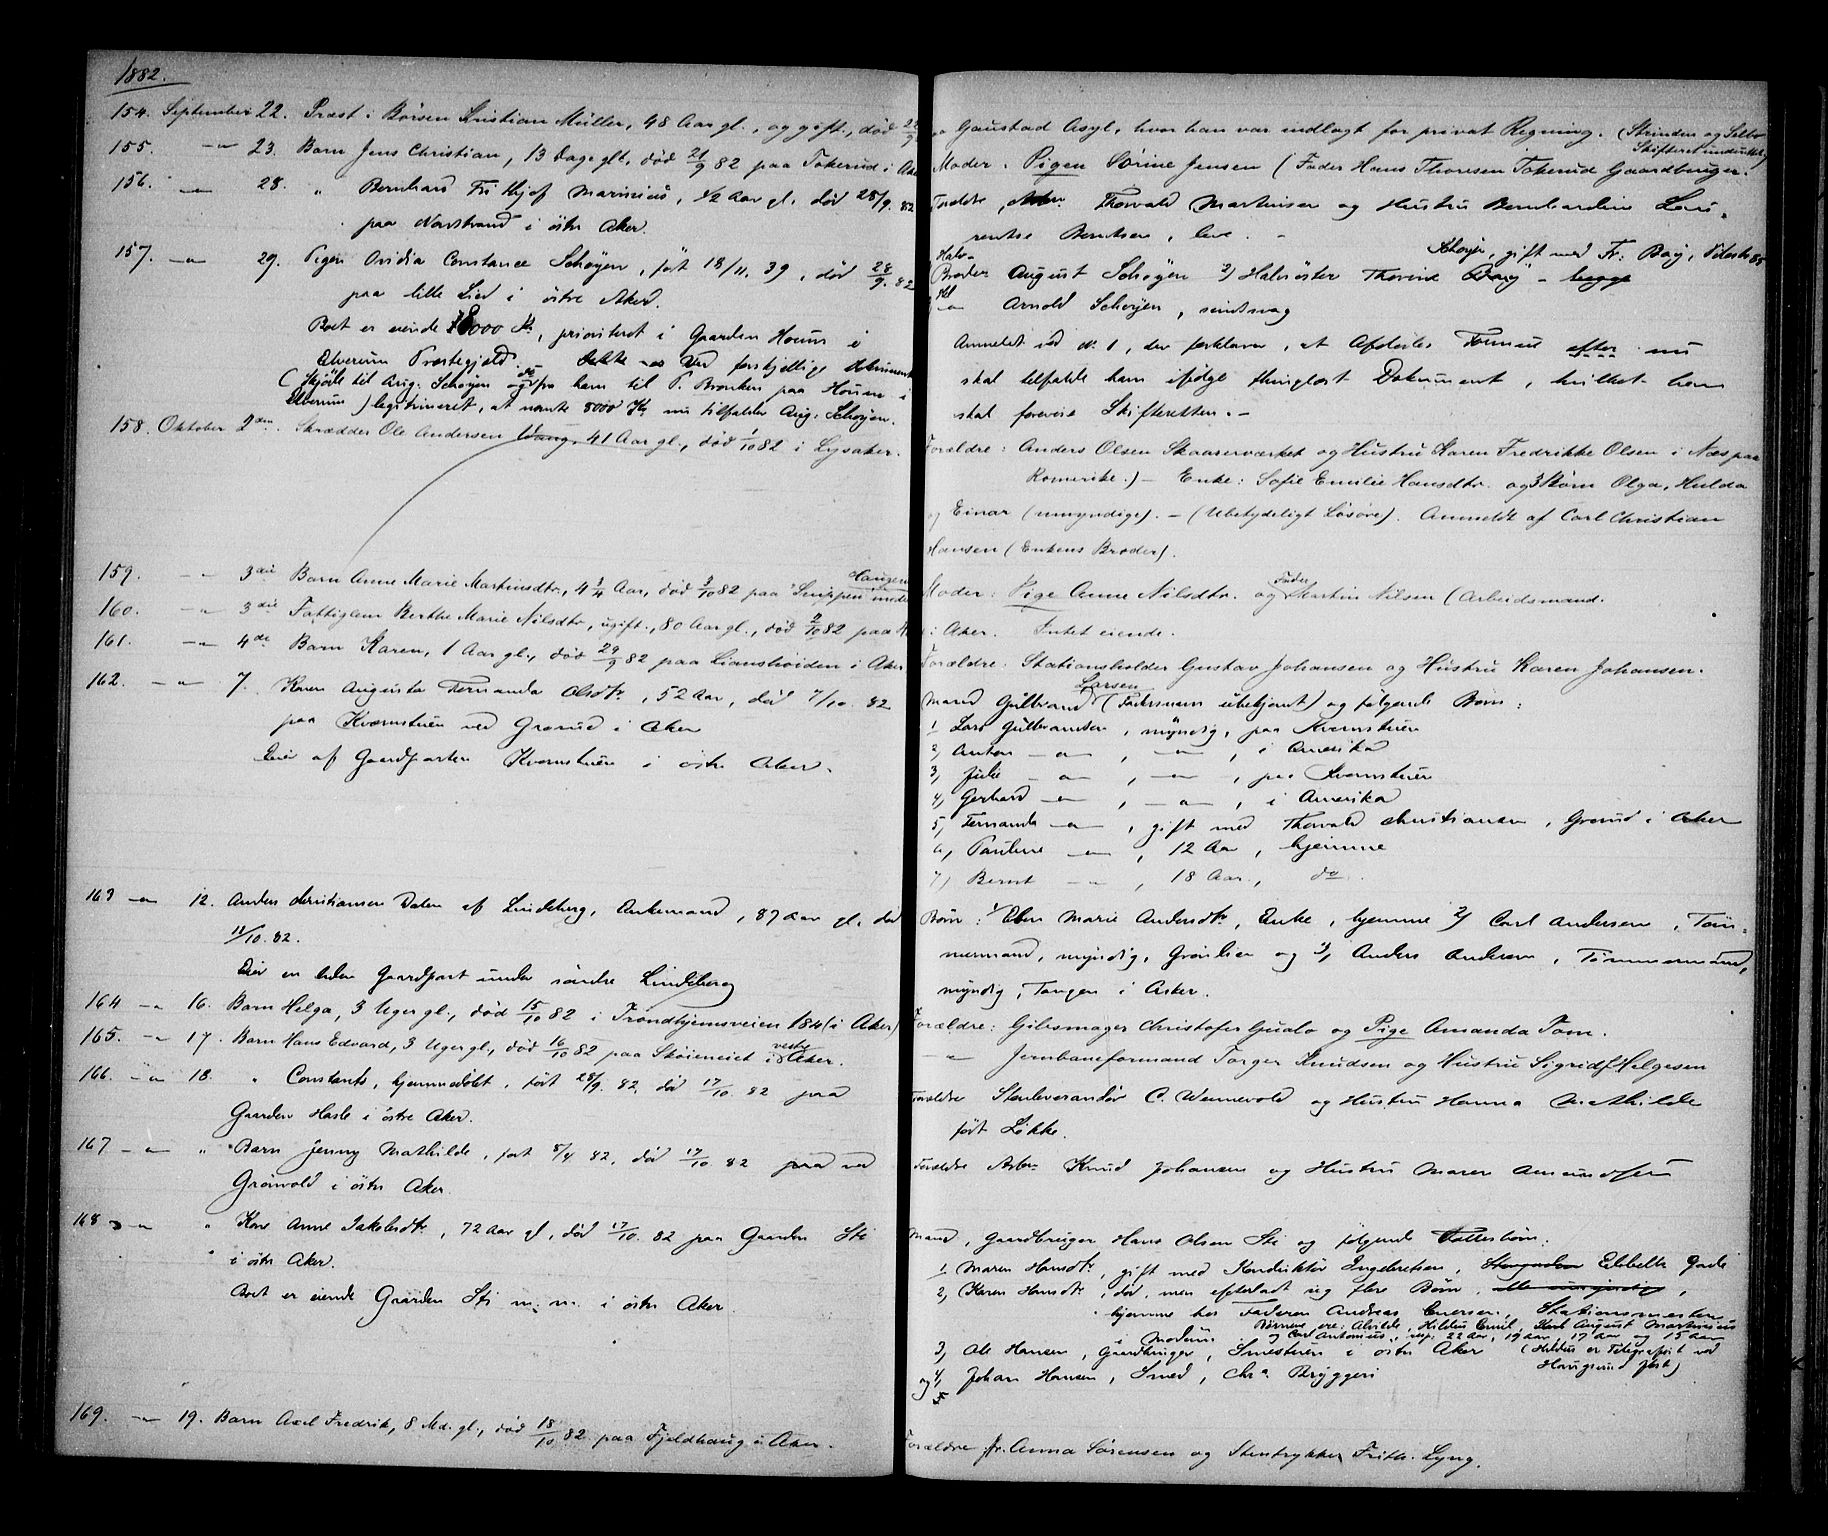 1882.
154. September 22. Præst i Børsen Kristian Müller, 48 Aar gl., og gift, død
155. -"- 23. Barn Jens Christian, 13 Dage gl., død 21/9 82 paa Tokerud i Aker
156. -"- 28. " Bernhard Frithjof Marinius, 1/2 Aar gl. død 28/9. 82
paa Norstrand i östre Aker.
157. -"- 29. Pigen Ovidia Constance Schøyen, født 18/11. 39, død 28/9. 82
paa lille Lied i östre Aker.
Boet er eiende 8000 Kr, prioriteret i Gaarden Hoium i
Elverum Præstegjeld. Ved forskjellige Dokumenter
(Skjøde til Aug. Schøyen og do fra ham til P. Bronken paa Hoium i
Elverum) legitimeret, at nævnte 8000 Kr nu tilfalder Aug. Schøyen.
158. Oktober 2den. Skrædder Ole Andersen Vang, 41 Aar gl., død 1/10 82 i Lysaker.
159. -"- 3die Barn Anne Marie Martinsdtr., 4 3/4 Aar, død 3/10 82 paa Haugen
160. -"- 3die Fattiglem Berthe Marie Nilsdtr, ugift, 80 Aar gl., død 2/10 82 paa
161. -"- 4de Barn Karen, 1 Aar gl., død 29/9 82 paa Lianshøiden i Aker
162. -"- 7. Karen Augusta Fernanda Olsdtr, 52 Aar, død 7/10. 82
paa Kværnstuen ved Grorud i Aker
Eier af Gaardparten Kvernstuen i östre Aker.
163 -"- 12. Anders Christiansen Dalen af Lindeberg, Enkemand, 87 Aar gl. død
11/10. 82.
Eier en liden Gaardpart under söndre Lindeberg
164 -"- 16. Barn Helga, 3 Uger gl., død 15/10 82 i Trondhjemsveien 184 (i Aker)
165. -"- 17. Barn Hans Edvard, 3 Uger gl., død 16/10 82 paa Skøieneiet i vestre Aker.
166. -"- 18. " Constants, hjemmedøbt, født 28/9. 82, død 17/10. 82 paa
Gaarden Hasle i östre Aker.
167 -"- " Barn Jenny Mathilde, født 8/4 82, død 17/10 82 paa ved
Grönvold i östre Aker.
168 -"- " Kone Anne Jakobsdtr, 72 Aar gl, død 17/10. 82 paa Gaarden Sti
i östre Aker.
Boet er eiende Gaarden Sti m. m. i östre Aker.
169. -"- 19. Barn Axel Fredrik, 8 Md. gl., død 18/10 82 paa Fjeldhaug i Aker.
Gaustad Asyl, hvor han var indlagt for privat Regning. (Strinden og Selbo
Skifteret underrettet)
Moder: Pigen Sörine Jensen (Fader Hans Thoresen Tokerud Gaardbruger.
Foreldre, Arbm. Thorvald Martinsen og Hustru Bernhardine Lau-
rentse Berntsen, leve. -
Halv-
Broder August Schøyen 2) Halvsöster Thorine Schøyen, gift med Fr. Bøy,
Arnold Schøyen, sindssvag
Anmeldt ved N. 1, der forklarer, at Afdødes Formue efter nu
skal tilfalde ham ifølge thinglæst Dokument, hvilket han
skal forevise Skifteretten. -
Forældre: Anders Olsen Skaarerværket og Hustru Karen Fredrikke Olsen i Næs paa
Romerike.) - Enke: Sofie Emilie Hansdtr. og 3 Börn Olga, Hulda
og Einar (umyndige). - (Ubetydeligt Løsøre). Anmeldt af Carl Christian
Hansen (Enkens Broder).
Moder: Pige Anne Nilsdtr. og Fader Martin Nilsen (Arbeidsmand.
i Aker. Intet eiende.
Forældre: Stationsholder Gustav Johansen og Hustru Karen Johansen.
Mand Gulbrand Larsen (Fadersnavn ubekjendt) og følgende Børn:
1 Lars Gulbrandsen, myndig, paa Kvernstuen
2, Anton -"-, -"-, i Amerika
3, Julie -"-, -"-, paa Kvernstuen
4, Gerhard -"-, -"-, i Amerika
5, Fernanda -"-, gift med Thorvald Christiansen, Grorud i Aker
6, Pauline -"-, 12 Aar, hjemme
7, Bernt -"-, 18 Aar, do.
Børn: 1 Ellen Marie Andersdtr, Enke, hjemme 2, Carl Andersen, Tøm-
mermand, myndig, Grorlien og 3, Anders Andersen, Tømmermand,
myndig, Tangen i Asker.
Forældre: Gibsmager Christofer Gualo og Pige Amanda Tom.
-"- Jernbaneformand Torger Knudsen og Hustru Sigrid Helgesen
Foreldre Stenleverandör C. Wennevold og Hustru Hanna Mathilde
født Løkke.
Foreldre Arbm Knud Johansen og Hustru Maren Amundsen
Mand, Gaardbruger Hans Olsen Sti og følgende Fællesbörn:
1 Maren Hansdtr, gift med Konduktør Engebretsen,
2, Karen Hansdtr, död, men efterladt sig flere Börn,
hjemme hos Faderen Andreas Enersen, Stationsmester
i Modum. Börnene ere: Alvilde, Hildus Emil, August Martinius
og Carl Antonius, resp. 22 Aar, 19 Aar, 17 Aar og 15 Aar
3, Ole Hansen, Gaardbruger, Smestuen i östre Aker (Hildus er Telegrafist ved
Haugsund Jbst)
og 4, Johan Hansen, Smed, Chra Bryggeri
Forældre Fr. Anna Sørensen og Stentrykker Frith. Lyng.